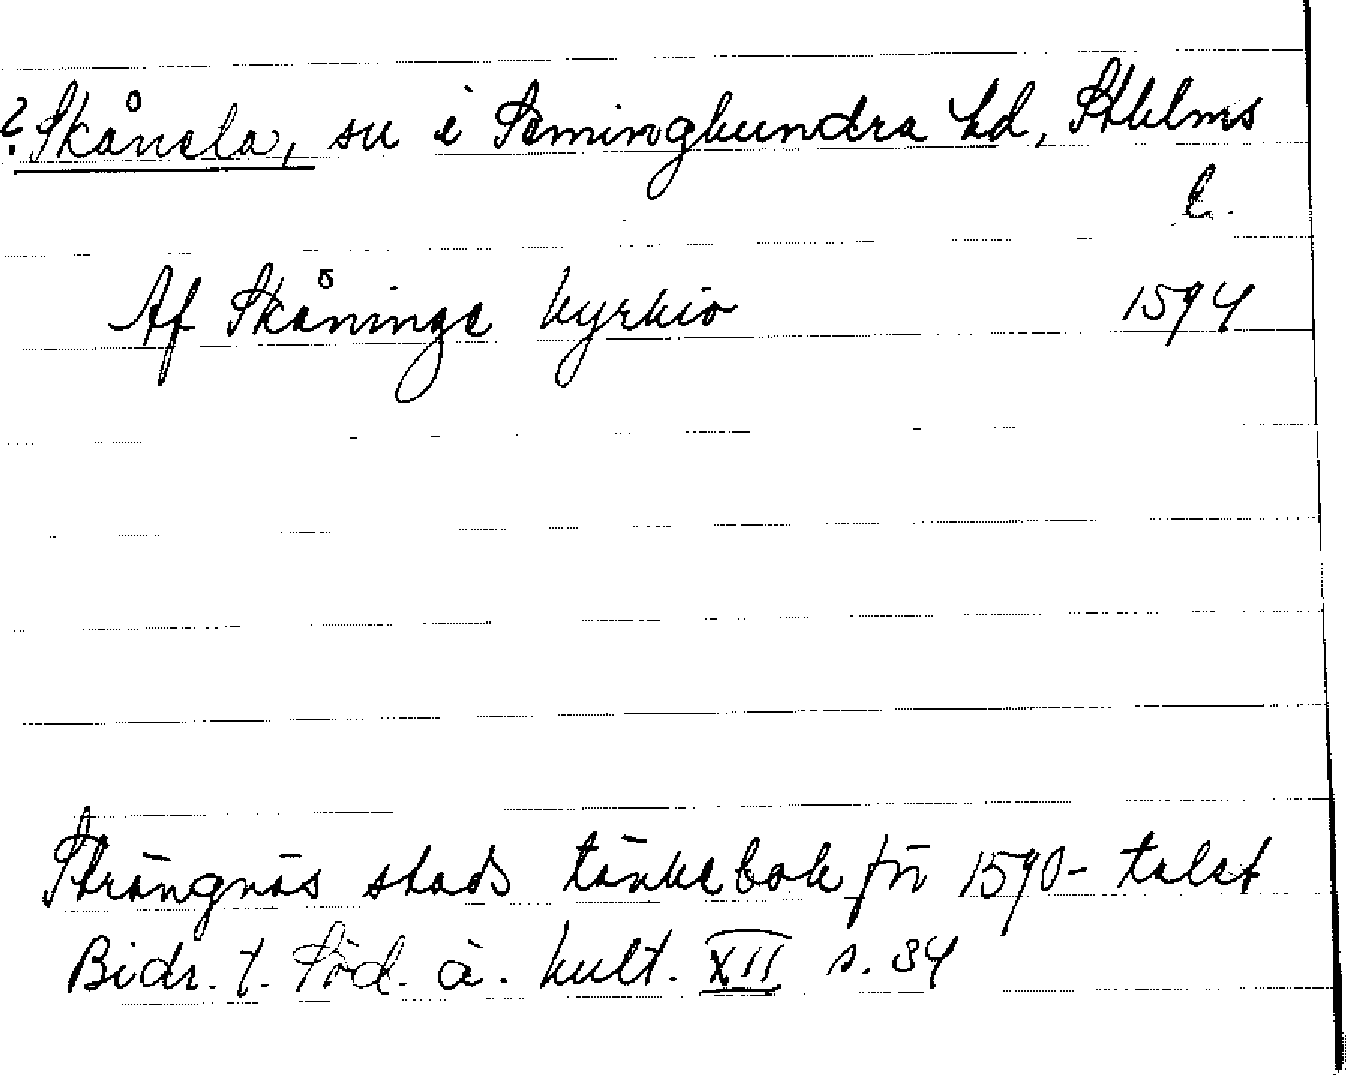 ? Skånela, sn i Seminghundra hd, Sthlms
l.
Af Skåninge kyrkio 1594
Strängnäs stads tänkebok fr 1590-talet
Bidr. t. Söd. ä. kult. XII s. 34